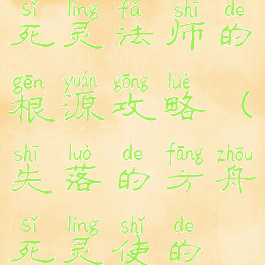 sǐ líng fǎ shī de
死灵法师的
gēn yuán gōng lüè
根源攻略（
shī luò de fāng zhōu
失落的方舟
sǐ líng shǐ de
死灵使的